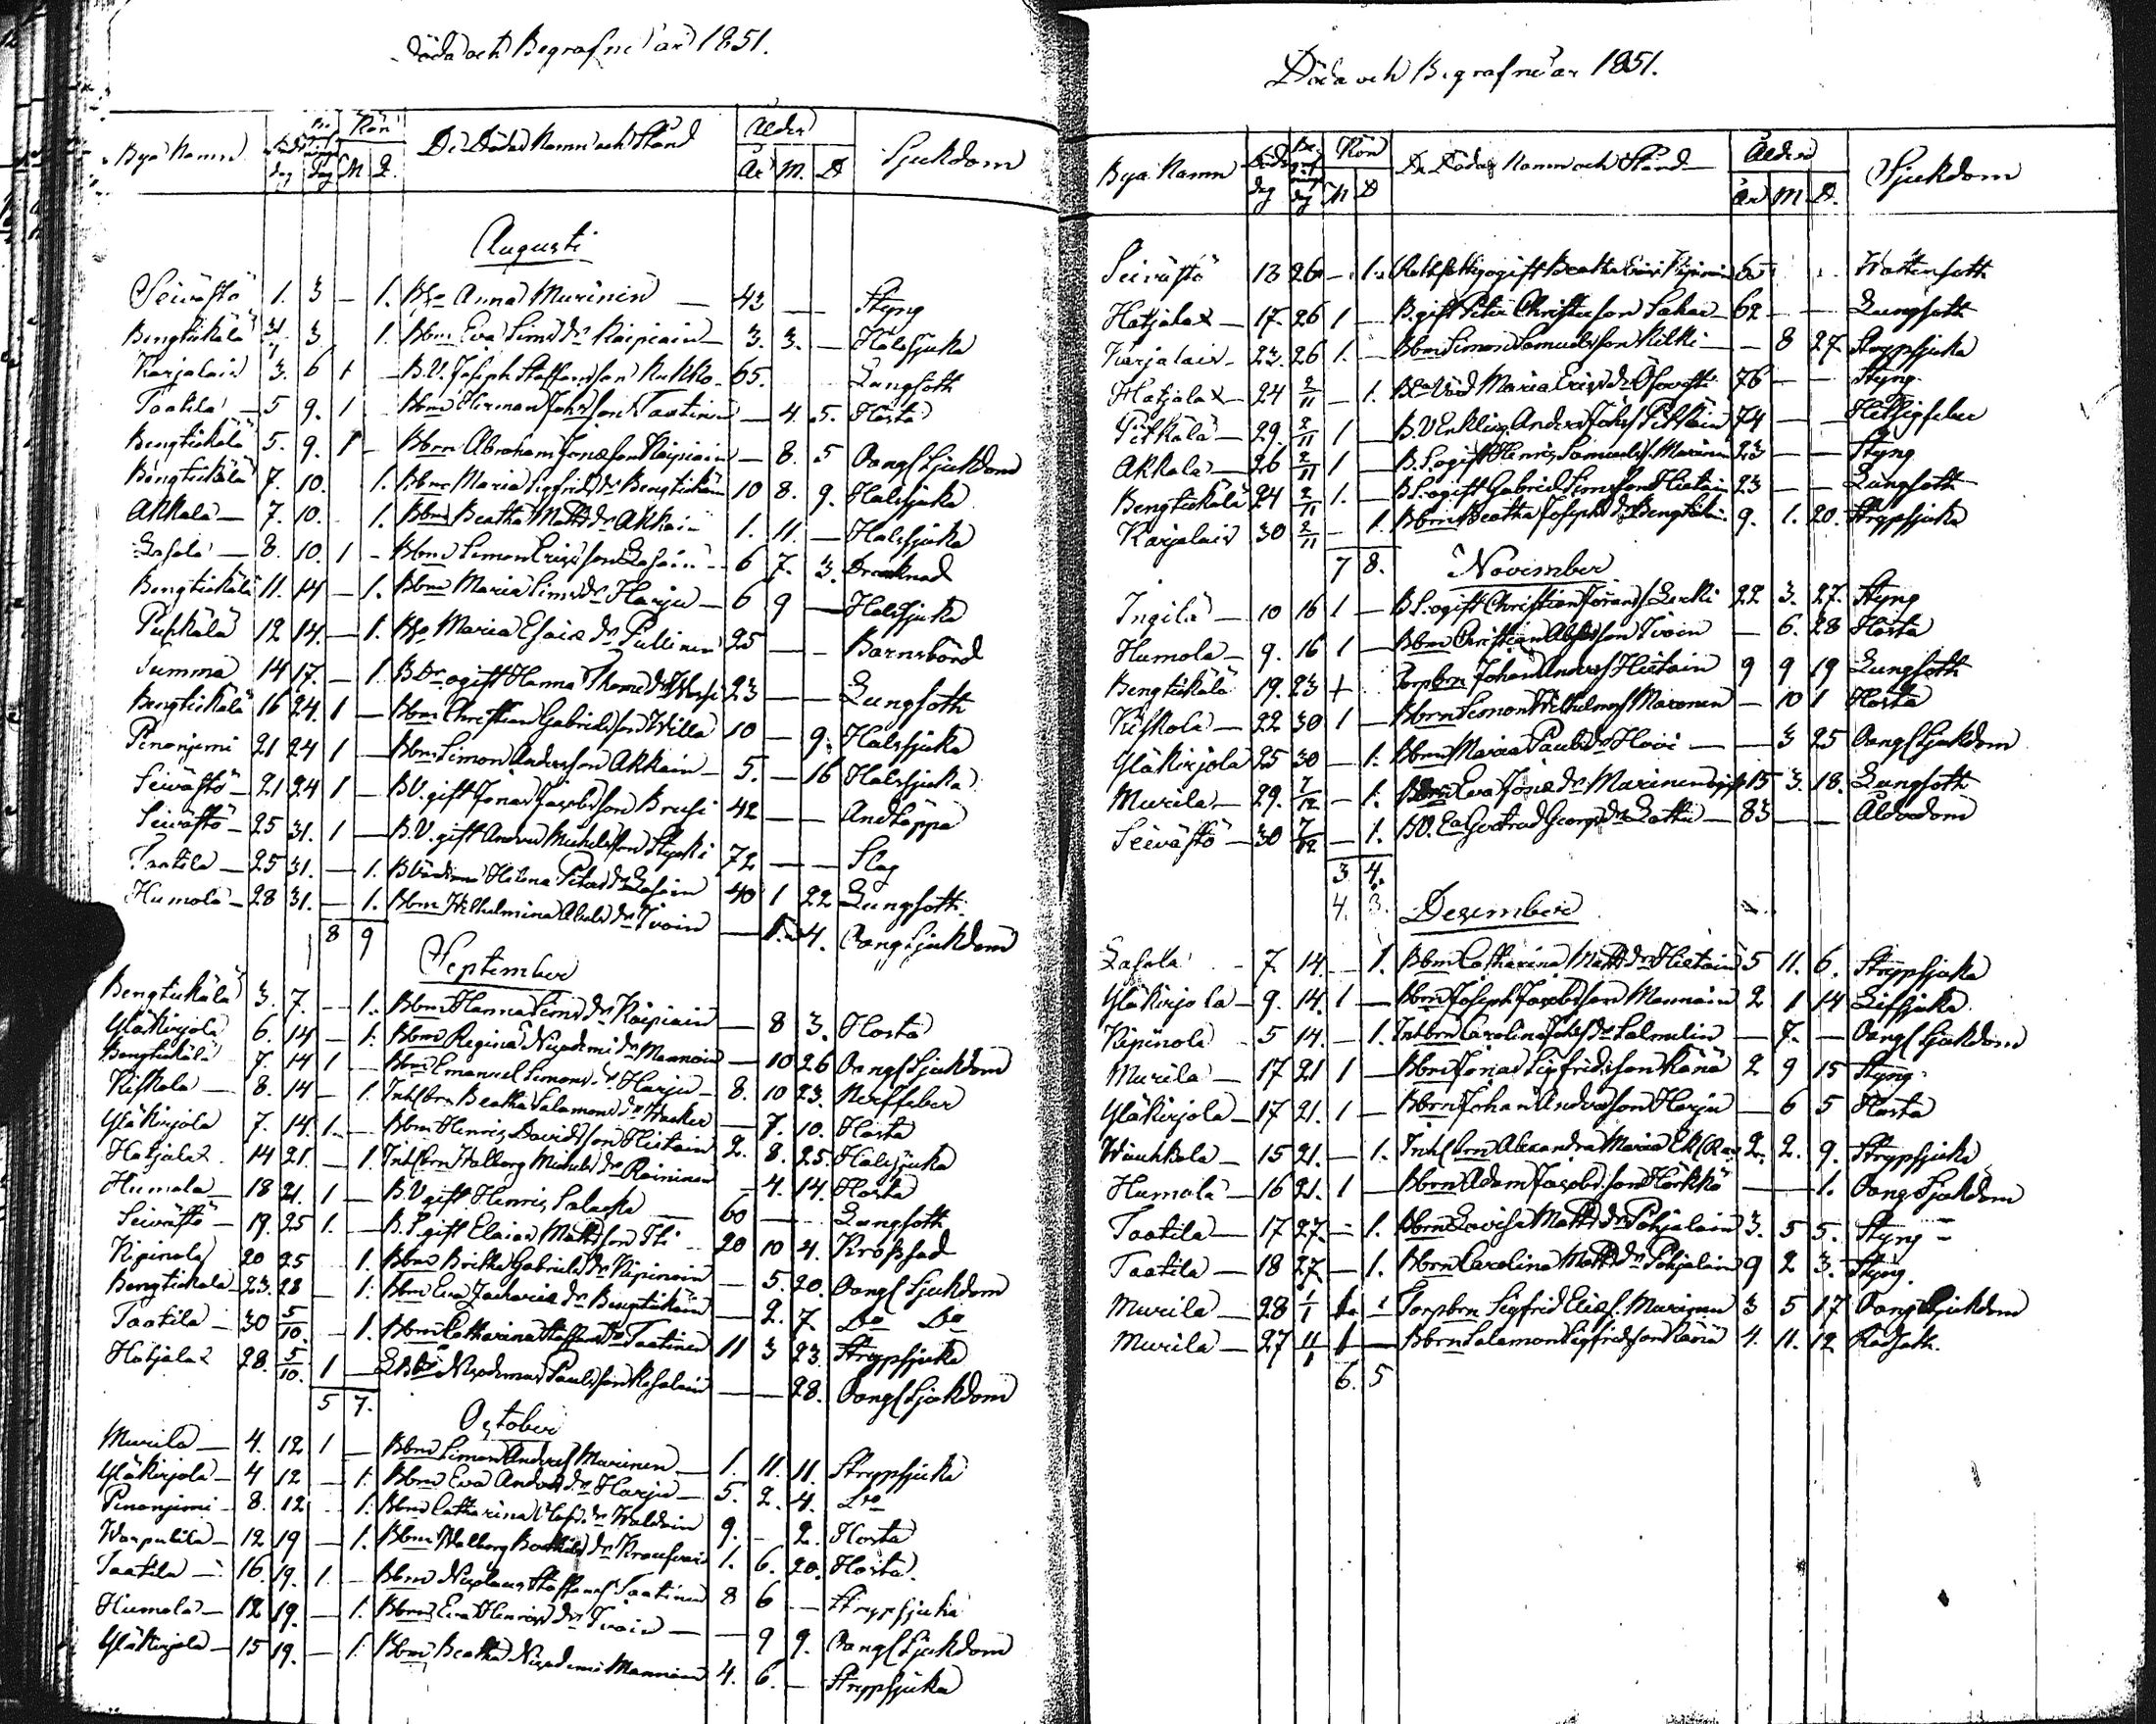 Döda och Begrafne år 1851.
Bya Namn Döds dag Begrafnings dag Kön M. Q. De Dödas Namn och Stånd Ålder År M. D Sjukdom
Augusti
Seivästö 1. 3 — 1. Anna Murinen — 43 — — Styng
Bengtiskälä 31/7 3 1. Bbrn Eva Sims dr Kaipiain — 3. 3. — Halssjuka
Karjalain 3. 6 1 — B.V. Joseph Staffansson Kukko — 65. Lungsoth
Taatila — 5 9. 1 Bbrn Herman Johsson Taatinen — 4. 5. Hosta
Bengtiskälä 5. 9. 1 — Bbrn Abraham Jonasson Kaipiain — 8. 5 Oang Sjukdom
Bengtiskälä 7. 10. 1. Bbrn Maria Sigfrids dr Bengtiskäin 10 8. 9. Halssjuka
Akkala — 7. 10. 1. Bbrn Beatha Matts dr Akkain 1. 11. — Halssjuka
Lasola — 8. 10. 1 — Bbrn Simon Ericsson 6 7. 3. Drunknad
Bengtiskälä 11. 14 — 1. Bbrn Maria Sims dr Harju — 6 9 — Halssjuka
12 14. — 1. Maria Esaiæ dr Pullinen 25 — — Barnsbörd
Summa 14 17. — 1. B.Dr ogift Hanna Thoms dr 23 — — Lungsoth
Bengtiskälä 16 24. 1 — Bbrn Christian Gabrielsson Willa 10 — 9. Halssjuka
Pinonjemi 21 24 1 — Bbrn Simon Andersson Akkain — 5. — 16 Halssjuka
Seivästö — 21 24 1 — B.V. gift Jonas Jacobsson Brusi 42 — — Andtäppa
Seivästö — 25 31. 1 — B.V. gift Anders Michelsson 72 — — Slag
Taatila — 25 31. — 1. Helena Peters dr Lasoin 40 1 22 Lungsoth.
Humola — 28 31. — 1. Bbrn Wilhelmina Abels dr Ivoin — 1. 4. Oang Sjukdom
8 9
September
Bengtiskälä 3. 7. — 1. Bbrn Hanna Sims dr Kaipiain — 8 3. Hosta
Yläkirjola 6. 14 — 1. Bbrn Regina Nicodemi dr Mannoin — 10 26 Oang Sjukdom
Bengtiskälä 7. 14 1 — Bbrn Emanuel Simons Harju — 8. 10 23. Nerffeber
Kiskola — 8. 14 — 1. Inhbrn Beatha Salamons dr — 7. 10. Hosta
Yläkirjola 7. 14. 1. — Bbrn Henric Davidsson Hietain 2. 8. 25. Halssjuka
Hatjalax 14 21. — 1. Inhbrn Walborg Michels dr Roininen — 4. 14. Hosta
Humala — 18 21. 1 — B.V gift Henric — 60 — — Lungsoth
Seivästö — 19. 25 1. — B.S. gift Elias Mattsson 20 10 4. Kroßsad
Kipinola 20 25 1. Bbrn Britha Gabriels dr Kipinoin — 5. 20. Oang Sjukdom
Bengtiskälä — 23. 28 — 1. Bbrn Eva Zacharia dr Bengtiskäin — 2. 7. Do Do
Taatila — 30 5/10. — 1. Bbrn Catharina Staffans dr Taatinen 11 3 23. Strypsjuka
Hatjalax 28. 5/10. 1 — Nicodemus Paulsson — — 28. Oang Sjukdom
5 7.
October
Murila — 4. 12 1 — Bbrn Simon Anders Murinen — 1. 11. 11. Strypsjuka
Yläkirjola — 4 12 — 1. Bbrn Eva Anders dr Harju — 5. 2. 4. Do
Pinonjemi — 8. 12 1. Bbrn Catharina dr Waldoin 9. — 2. Hosta
Warpulila — 12 19 — 1. Bbrn Walborg dr 1. 6. 20. Hosta
Taatila — 16. 19. 1. — Bbrn Nicolaus Staffans Taatinen 8 6 — Strypsjuka
Humola — 12 19. — 1. Bbrn Eva Henrics dr Ivoin — — 9 9. Oang Sjukdom
Yläkirjola — 15 19. — 1. Bbrn Beatha Nicodemi Mannoin 4. 6. — Strypsjuka
Döda och Begrafne år 1851.
Bya Namn Döds dag Begrafnings dag Kön M D De Dödas Namn och Stånd Ålder År M. D. Sjukdom
Seivästö 13 26 — 1. Beatha 65 Wattensoth
Hatjalax — 17. 26 1 — B.gift Peter Christersson Sakar — 62 — — Lungsoth
Karjalais — 23. 26 1. — Bbrn Simon Samuelsson Kilkki — — 8 27. Strypsjuka
Hatjalax — 24 2/11 — 1. Maria Erics dr 76 — — Styng.
Pitkälä — 29. 2/11 1 — B.V Enkling Anders Johs Pitkäin 74 — — Hetsigfeber
Akkala — 26 2/11 1 — B.S. ogift Henric Samuels Murinen 23 — — Styng
Bengtiskälä 24 2/11 1. — B.S. ogift Gabriel Simsson Hietain 23 — — Lungsoth
Karjalais 30 2/11 — 1. Bbrn Beatha Josephs dr 9. 1. 20. Strypsjuka
7 8.
November
Ingilä — 10 16 1 — B.S. ogift Christian Jörans Lerkki 22 3. 27. Styng
Humola — 9. 16 1 — Bbrn Christian Abelsson Ivoin — 6. 28 Hosta
Bengtiskälä 19. 23 1 Torpbrn Johan Anders Hietain 9 9 19 Lungsoth
Kiskola — 22 30 1 — Bbrn Simon Wilhelms Maronen — 10 1 Hosta
Yläkirjola 25 30 — 1. Bbrn Maria Pauls dr Hovi — — 3 25 Oang Sjukdom
Murila — 29. 7/12 — 1. Eva Jonæ dr Murinen ogift 15 3. 18. Lungsoth
Seivästö — 30 7/12 — 1. B.V. Ea Gertrud Georgs dr Lattu — 83 — — Ålderdom
3 4.
4. 3. Desember
Lasola — 7. 14. 1. Bbrn Catharina Matts dr Hietain 5 11. 6. Strypsjuka
Yläkirjola — 9. 14. 1 — Bbrn Joseph Jacobsson Mannoin 2 1 14 Lifsjuka
Kipinola — 5 14. — 1. Inhbrn Carolina Johs dr Salmelin — 7. — Oang Sjukdom
Murila — 17 21 1 — Bbrn Jonas Sigfridsson Käriä 2 9 15 Styng.
Yläkirjola — 17 21. 1 — Bbrn Johan Andersson Harju — 6 5 Hosta
15 21. — 1. Inhbrn Alexandra Maria 2. 2. 9. Strypsjuka
Humola — 16 21. 1 — Bbrn Adam Jacobsson Härkkö — — 1. Oang Sjukdom
Taatila — 17 27. — 1. Bbrn Lovisa Matts dr Pohjalain 3. 5 5. Styng —
Taatila — 18 27. — 1. Bbrn Carolina Matts dr Pohjalain 9 2 3. Styng.
Murila — 28 1/1 1 — Torpbrn Sigfrid Elias Murinen 3 5 17 Oang Sjukdom
Murila — 27 11/1 1 — Bbrn Salamon Sigfridsson Käriä 4. 11. 12 Rödsoth.
6. 5